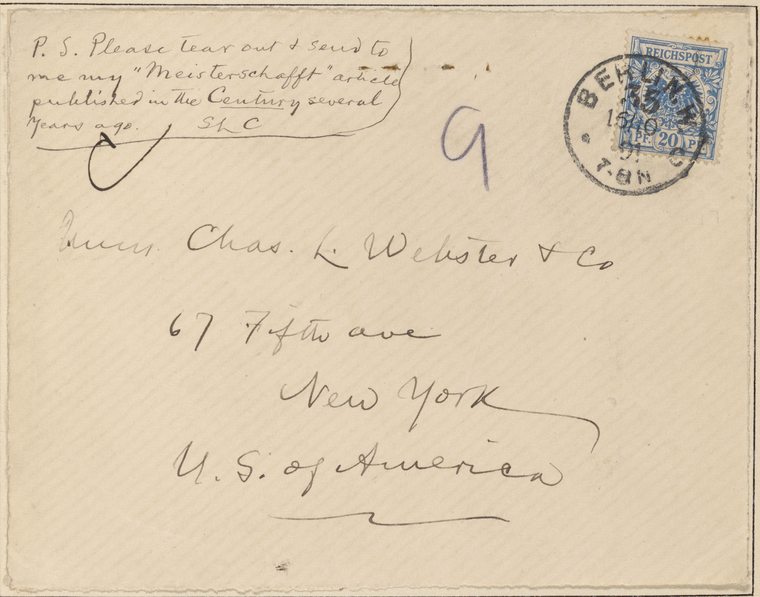 P. S. Please tear out & send to
me my "Meisterschafft" article
published in the Century several
years ago. SLC
9
REICHSPOST
PF. 20 PF.
BERLIN
35
10
91
7-8N
C
Chas. L. Webster & Co
67 Fifth ave
New York
U. S. of America